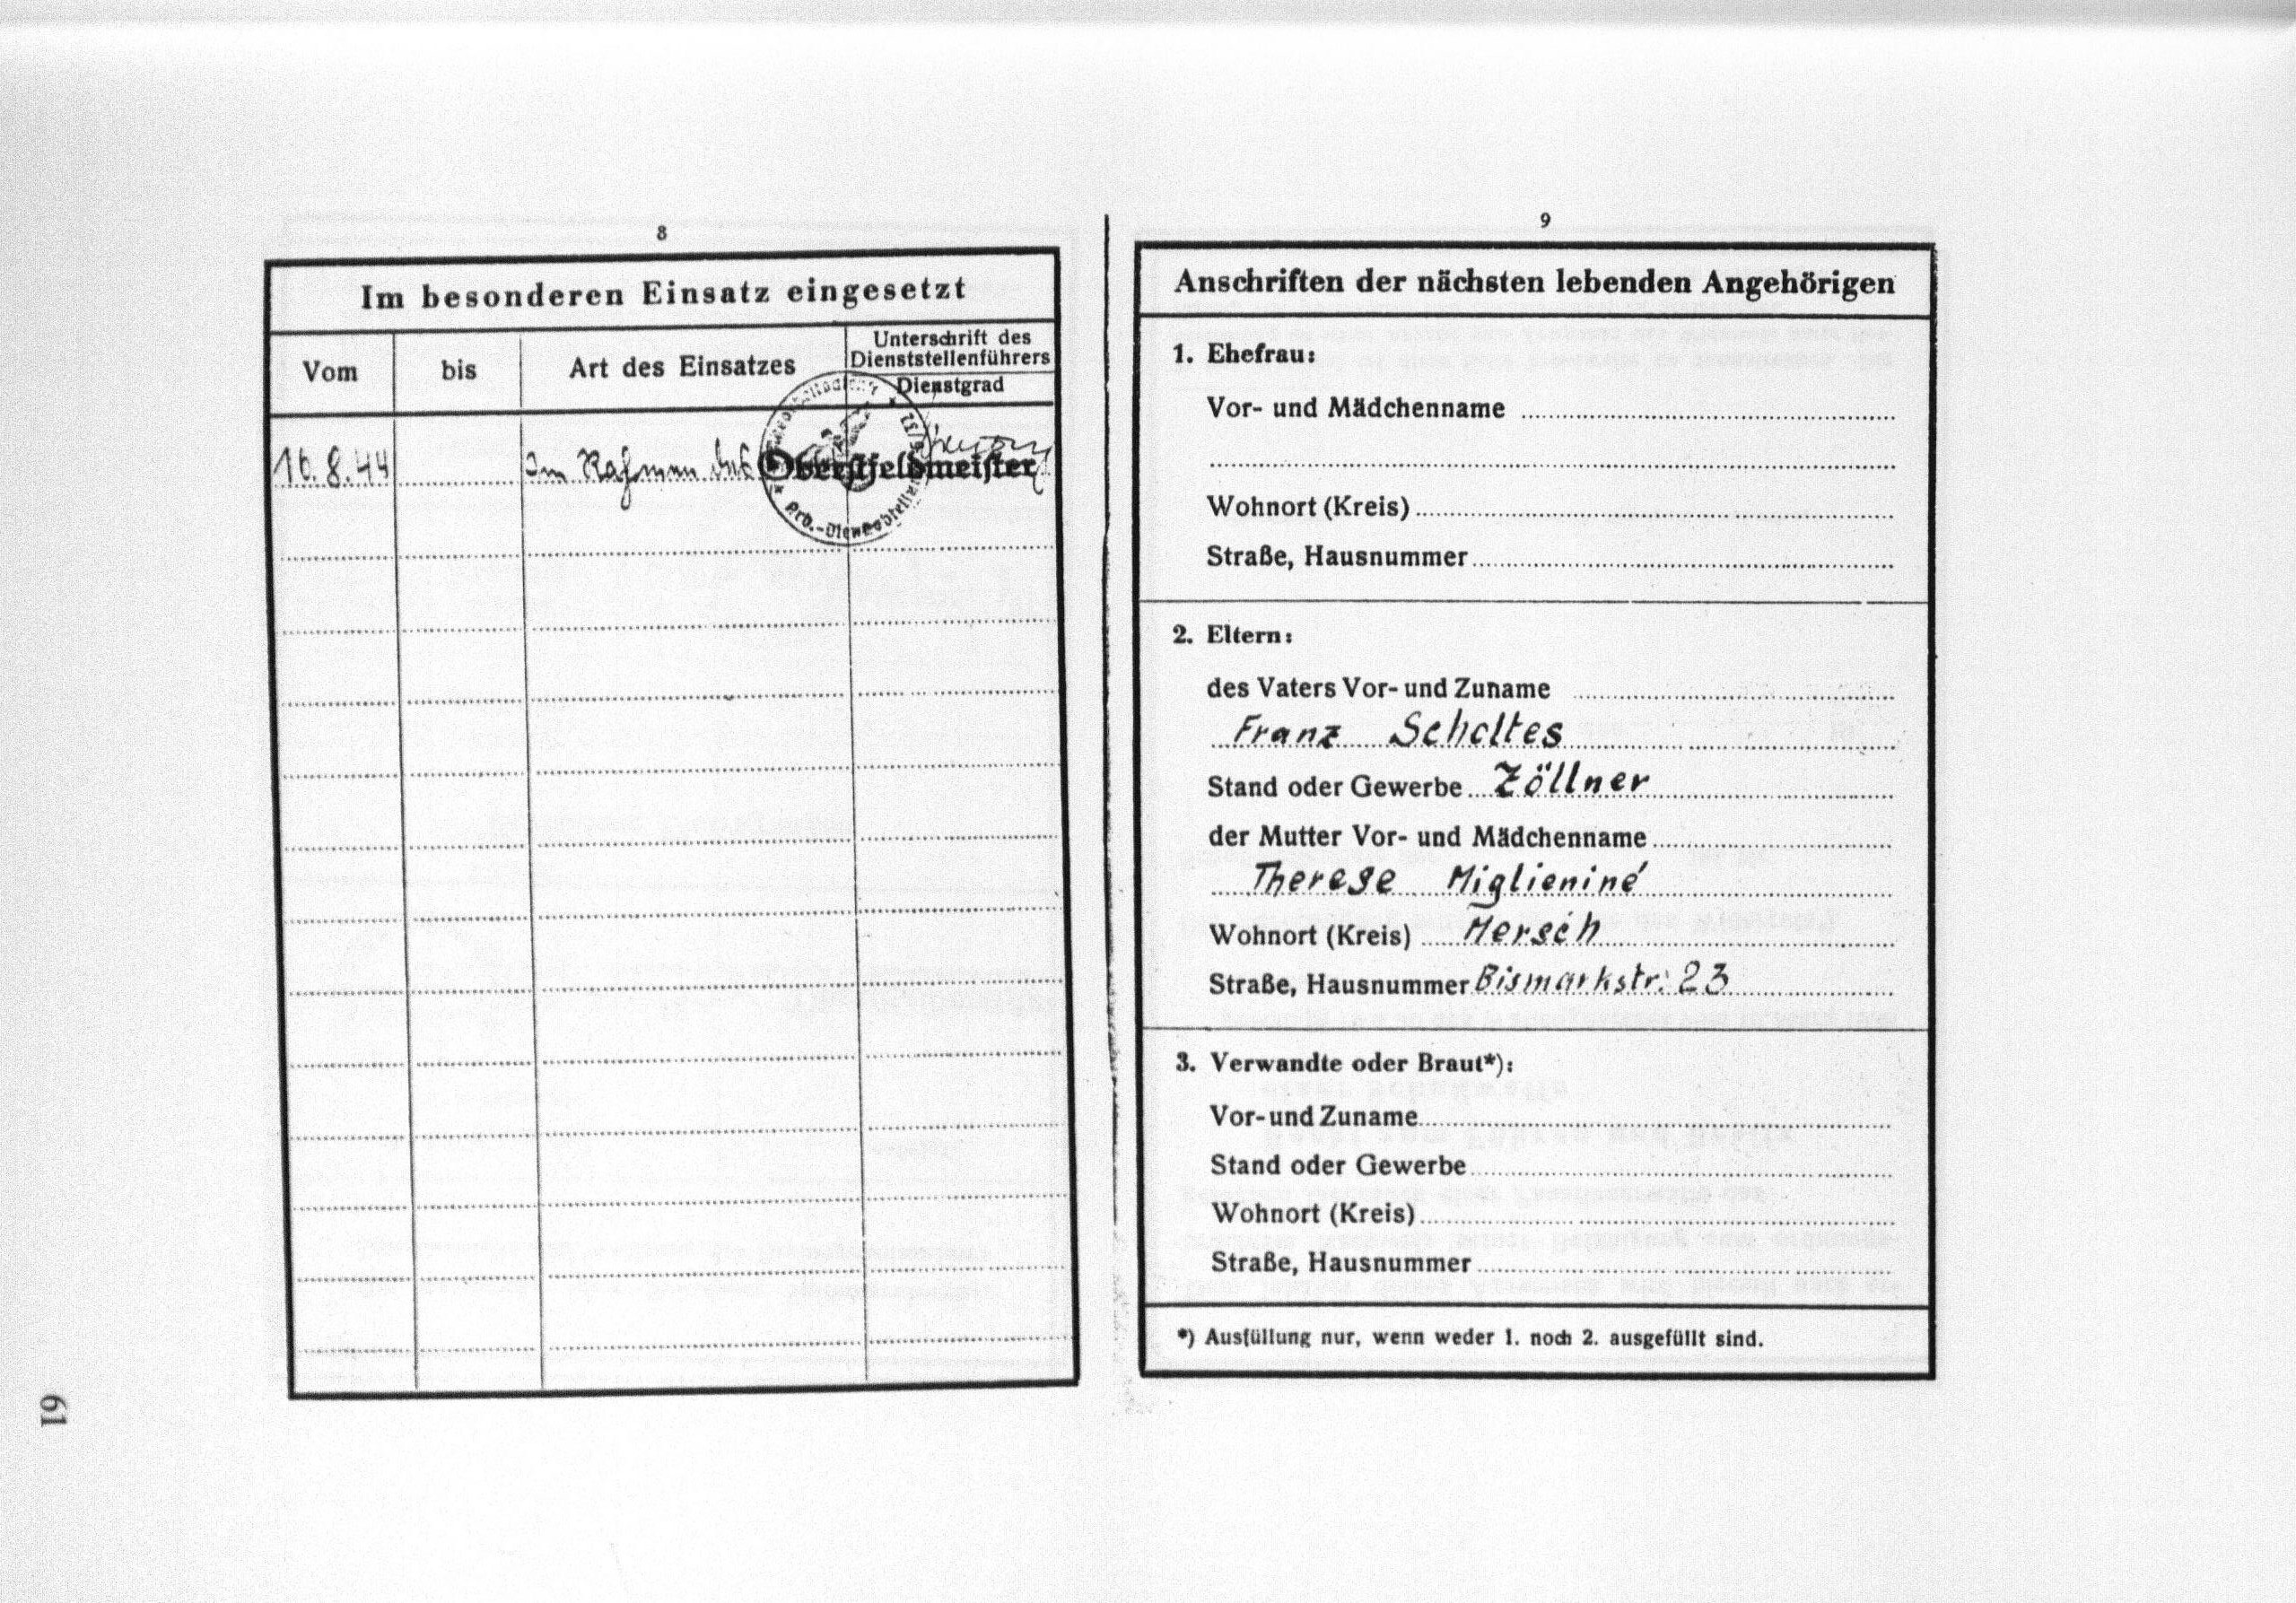 8
Im besonderen Einsatz eingesetzt
Vom
bis
Art des Einsatzes
Unterschrift des
Dienststellenführers
Dienstgrad
16.8.44
Im Rahmen des
Oberstfeldmeister
9
Anschriften der nächsten lebenden Angehörigen
1. Ehefrau:
Vor- und Mädchenname
Wohnort (Kreis)
Straße, Hausnummer
2. Eltern:
des Vaters Vor- und Zuname
Franz Scholtes
Stand oder Gewerbe Zöllner
der Mutter Vor- und Mädchenname
Therese Miglieniné
Wohnort (Kreis) Mersch
Straße, Hausnummer Bismarkstr. 23
3. Verwandte oder Braut*):
Vor- und Zuname
Stand oder Gewerbe
Wohnort (Kreis)
Straße, Hausnummer
*) Ausfüllung nur, wenn weder 1. noch 2. ausgefüllt sind.
61